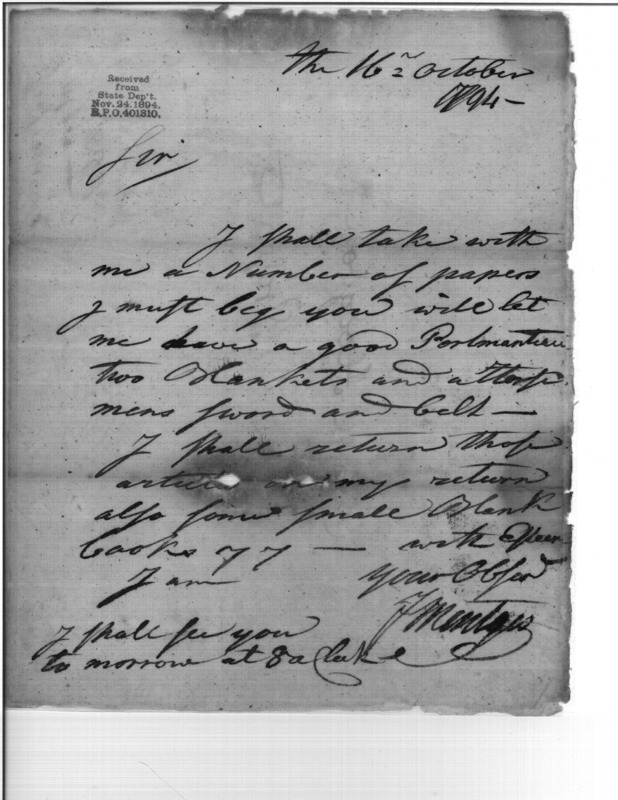 Received
from
State Dep't.
Nov. 24. 1894.
R.P.O. 401310.
the 16 October
1794 -
Sir
I shall take with
me a Number of papers
I must beg you will let
me have a good Portmanteau
two Blankets and a Horse
mens sword and belt —
I shall return those
articles on my return
also some small Blank
books — with Esteem
I am your Obser
J Mentges
I shall see you
to morrow at 8 a Clocke